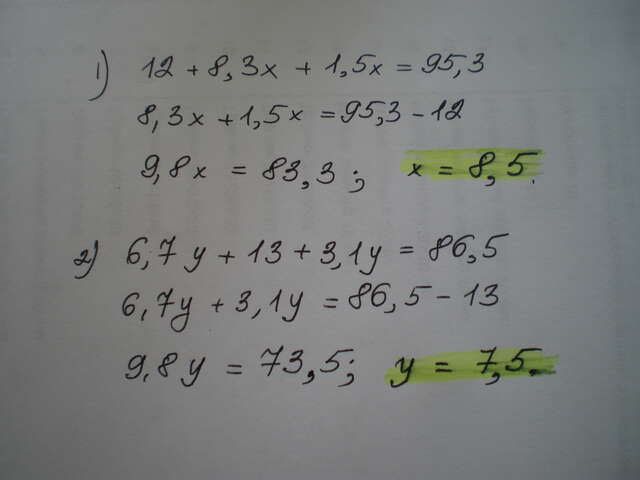 1) 12 + 8,3x + 1,5x = 95,3
8,3x + 1,5x = 95,3 - 12
9,8x = 83,3; x = 8,5.
2) 6,7y + 13 + 3,1y = 86,5
6,7y + 3,1y = 86,5 - 13
9,8y = 73,5; y = 7,5.